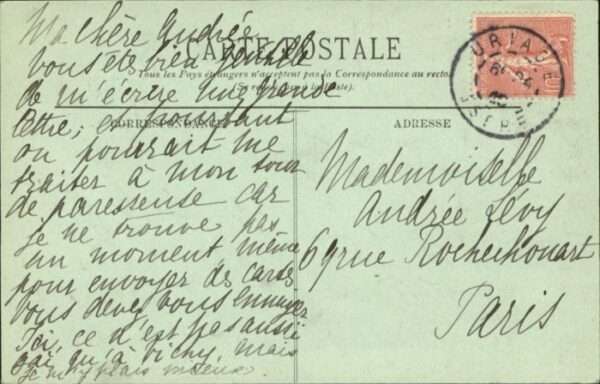 Ma chère Andrée
vous êtes bien gentille
de m'écrire une grande
lettre, et pourtant
on pourrait me
traiter à mon tour
de paresseuse car
je ne trouve pas
un moment même
pour envoyer des cartes
vous devez vous ennuyer
Ici, ce n'est pas aussi
gai qu'à Vichy, mais
je m'y plais mieux.
CARTE POSTALE
Tous les pays étrangers n'acceptent pas la Correspondance au recto
CORRESPONDANCE
ADRESSE
Mademoiselle
Andrée Lévy
69 rue Rochechouart
Paris
URIAGE
ISERE
10